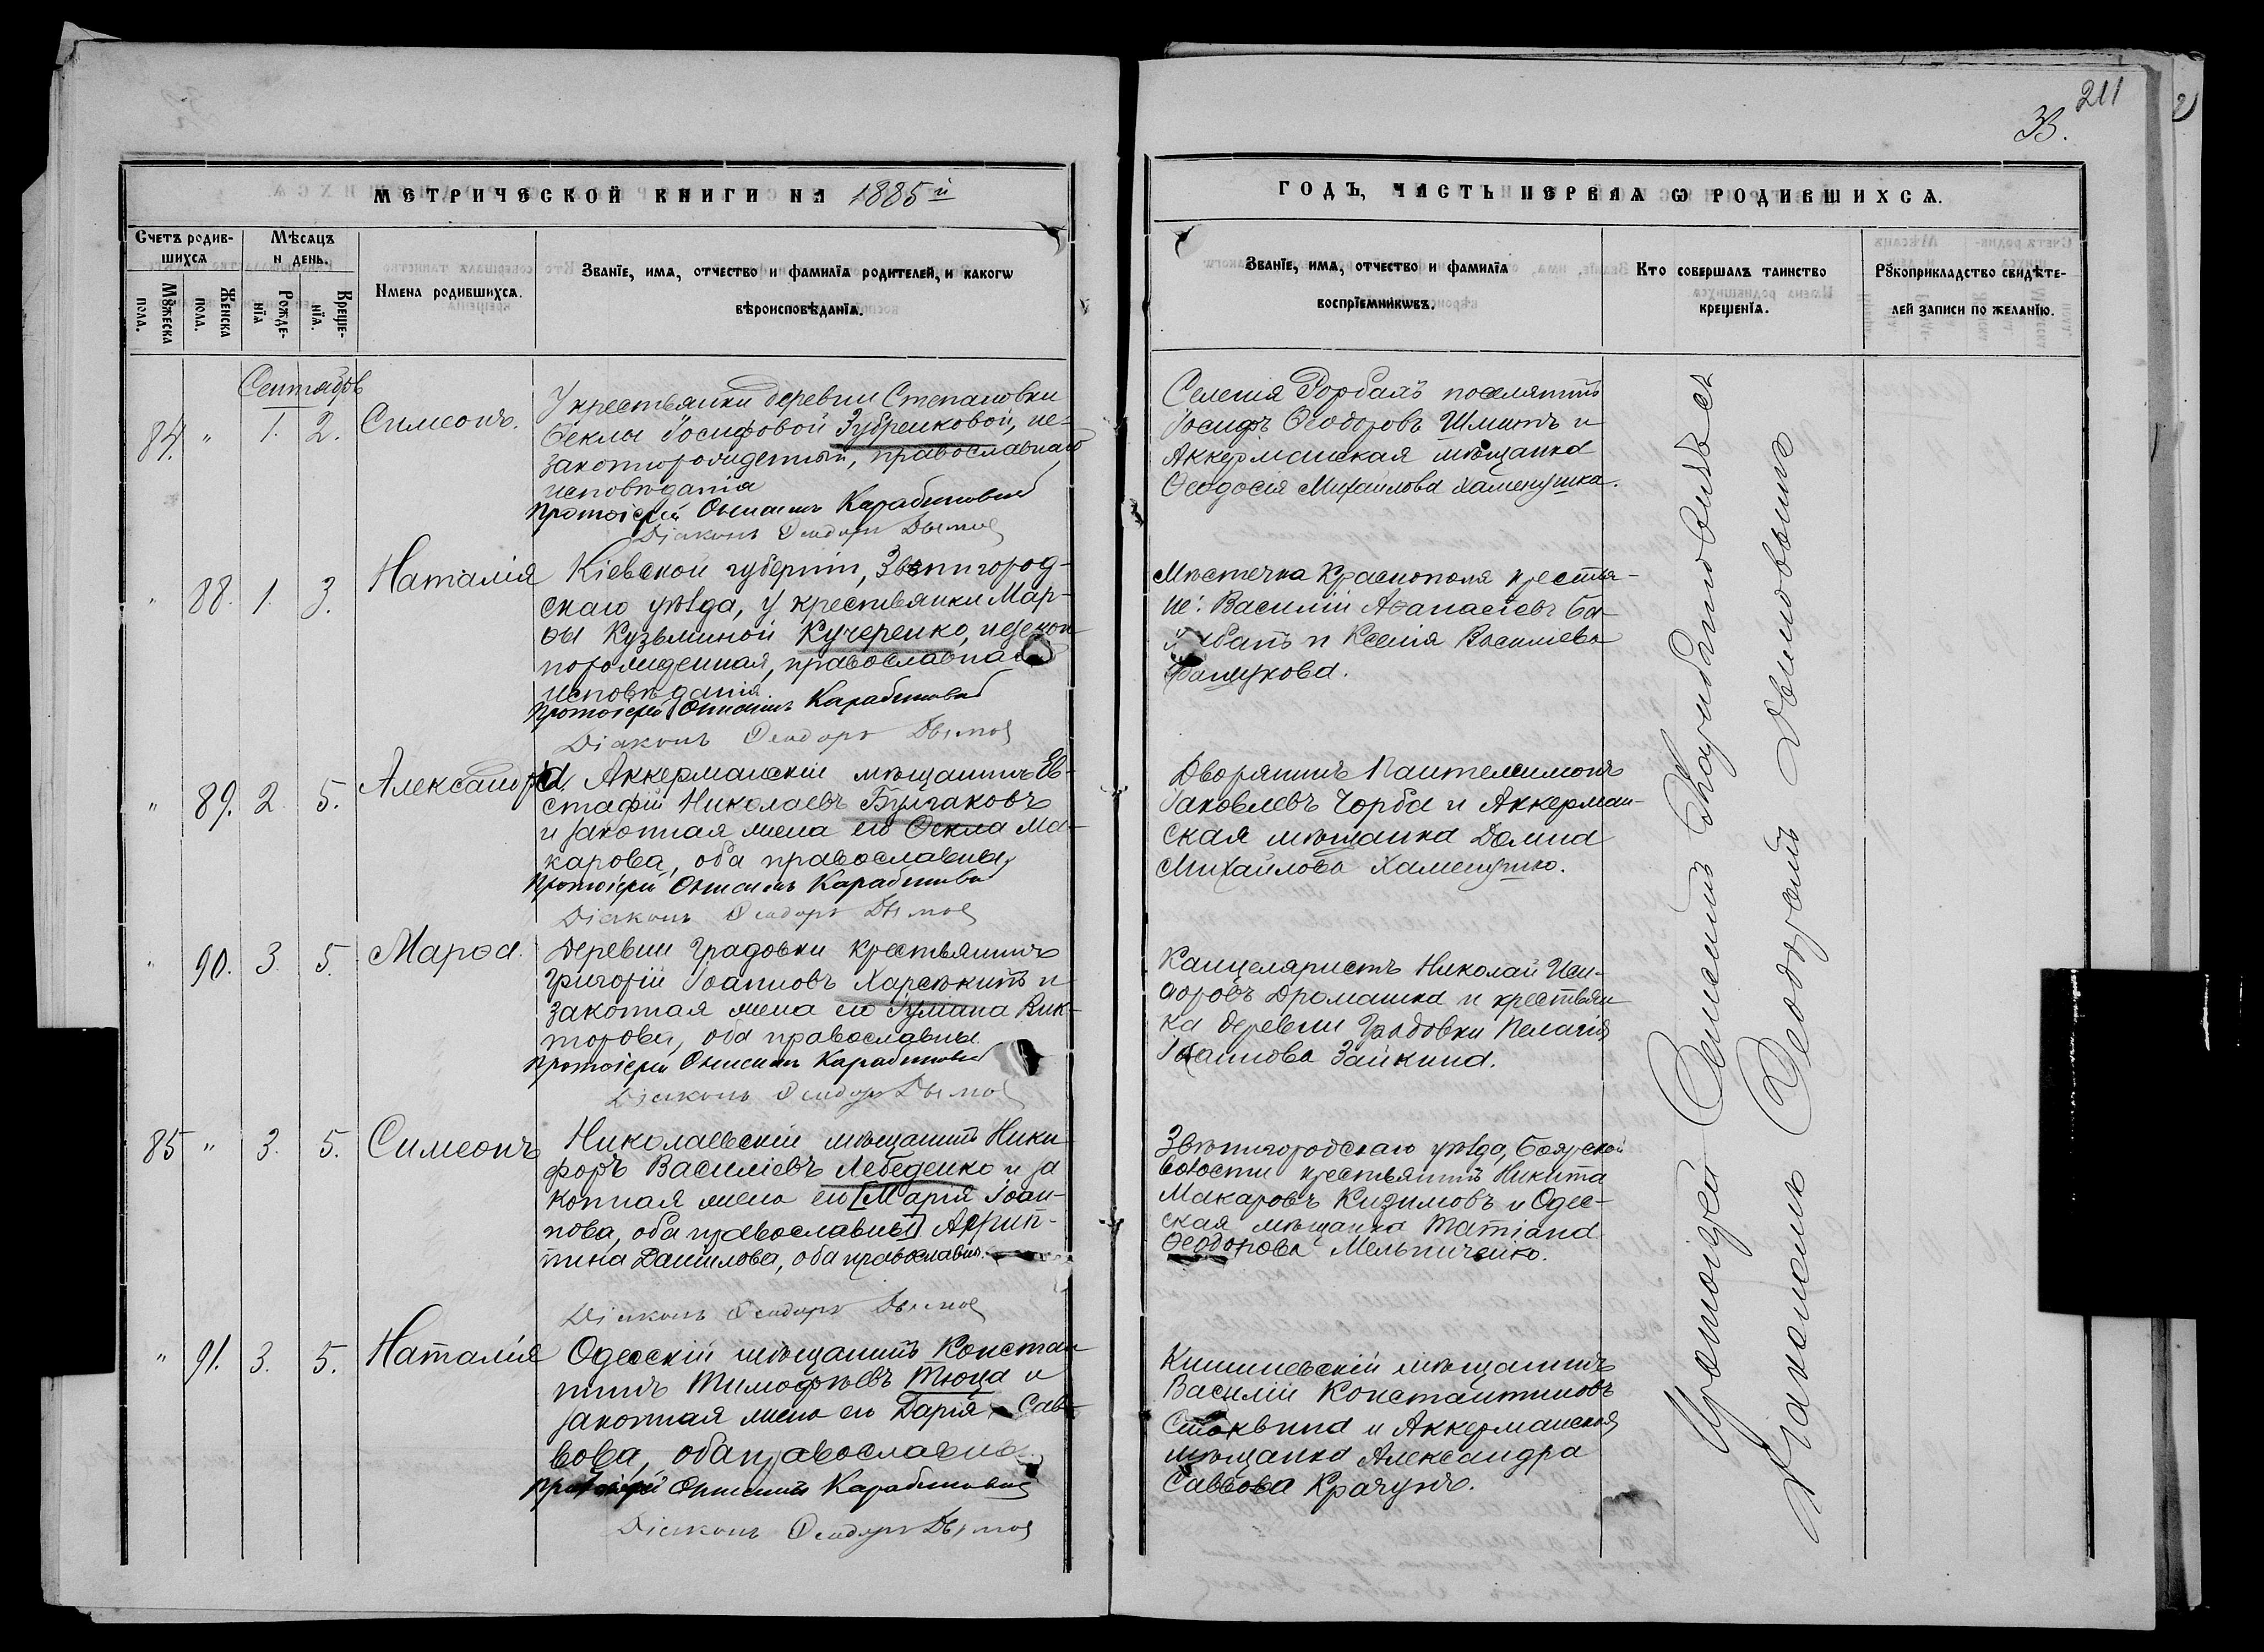 211
33.
МЕТРИЧЕСКОЙ КНИГИ НА 1885 й
ГОДЪ, ЧАСТЬ ПЕРВАЯ Ѡ РОДИВШИХСѦ.
Счетъ родив-
шихсѧ
Мѣсѧцъ
и день.
Мꙋжеска
пола.
Женска
пола.
Рожде-
нїѧ
Креще-
нїѧ.
Имена родившихсѧ.
Званїе, имѧ, отчество и фамилїѧ родителей, и какогѡ
вѣроисповѣданїѧ.
Званїе, имѧ, отчество и фамилїѧ
воспрїемникѡвъ.
Кто совершалъ таинство
крещенїѧ.
Рꙋкоприкладство свидѣте-
лей записи по желанїю.
Сентябрь
84. " 1. 2. Симеонъ.
У крестьянки деревни Степановки
Ѳеклы Іосифовой Зубренковой, не-
законнорожденный, православнаго
исповѣданія
Протоіерей Онисимъ Карабиновичъ
Діаконъ Ѳеодоръ Дымов
Селенія Рорбахъ поселянинъ
Іосифъ Ѳеодоровъ Шмитъ и
Аккерманская мѣщанка
Ѳеодосія Михайлова Хаменушка.
" 88. 1. 3. Наталія
Кіевской губерніи, Звенигород-
скаго уѣзда, у крестьянки Мар-
ѳы Кузьминой Кучеренко, незакон-
норожденная, православнаго
исповѣданія.
Протоіерей Онисимъ Карабиновичъ
Діаконъ Ѳеодоръ Дымов
Мѣстечка Краснополя крестья-
не: Василій Аѳанасіевъ
и Ксенія Василіева
" 89. 2. 5. Александра
Аккерманскій мѣщанинъ Ев-
стафій Николаевъ Булгаковъ
и законная жена его Ѳекла Ма-
карова, оба православны,
Протоіерей Онисимъ Карабиновичъ
Діаконъ Ѳеодоръ Дымов
Дворянинъ Пантелеимонъ
Іаковлевъ Чорба и Аккерман-
ская мѣщанка Домна
Михайлова Хаменушко.
" 90. 3. 5. Марѳа.
Деревни Градовки крестьянинъ
Григорій Іоанновъ Харсѣкинъ и
законная жена его Іуліана Вик-
торова, оба православны
Протоіерей Онисимъ Карабиновичъ
Діаконъ Ѳеодоръ Дымов
Канцеляристъ Николай Иси-
доровъ Дромашка и крестьян-
ка деревни Градовки Пелагія
Іоаннова Зайкина.
85 " 3. 5. Симеонъ
Николаевскій мѣщанинъ Ники-
форъ Василіевъ Лебеденко и за
конная жена его [Марія Іоан-
нова, оба православны] Агрип-
пина Данилова, оба православн.
Діаконъ Ѳеодоръ Дымов
Звенигородскаго уѣзда, Боярской
волости крестьянинъ Никита
Макаровъ Кизимовъ и Одес-
ская мѣщанка Татіана
Ѳеодорова Мельниченко.
" 91. 3. 5. Наталія
Одесскій мѣщанинъ Констан-
тинъ Тимофѣевъ Тюца и
законная жена его Дарія Сав-
вова, оба православны
Протоіерей Онисимъ Карабиновичъ
Діаконъ Ѳеодоръ Дымов
Кишиневскій мѣщанинъ
Василій Константиновъ
и Аккерманская
мѣщанка Александра
Саввова Крачунъ.
Протоіерей Онисимъ Карабиновичъ съ
Діакономъ Ѳеодоромъ Дымовымъ